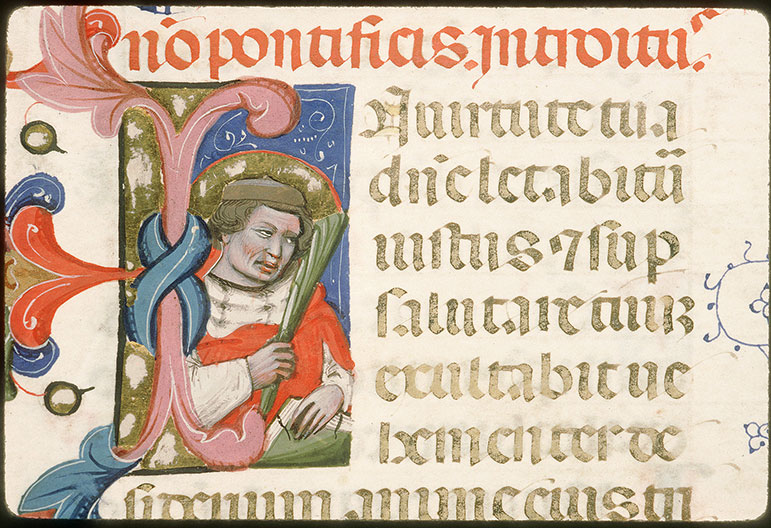 nō pontificis. Introitu.
IN uirtute tua
dñe letabitū
iustus ⁊ sup
salutare tuuʒ
exultabit ue
hementer de
siderium anime eius tri